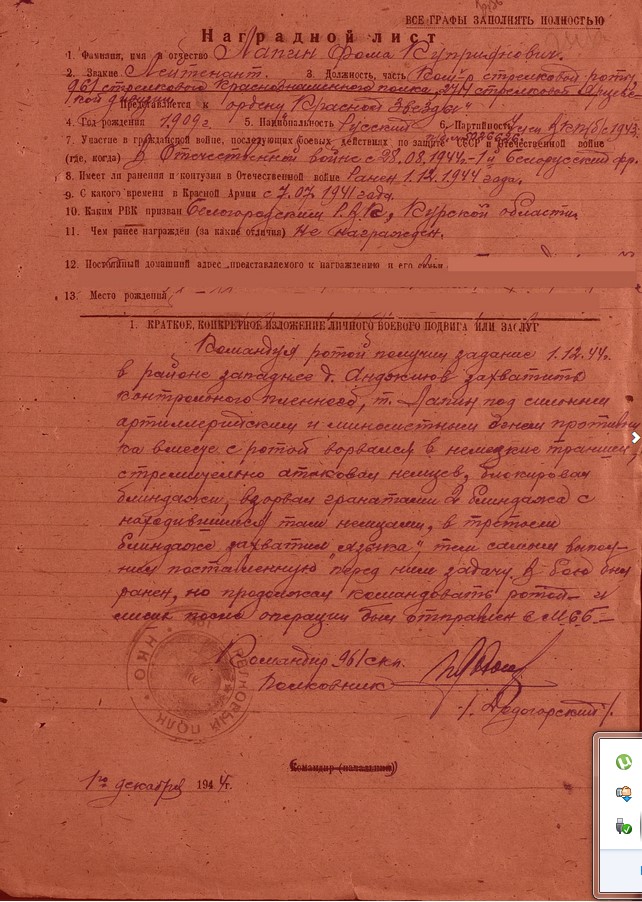 ВСЕ ГРАФЫ ЗАПОЛНЯТЬ ПОЛНОСТЬЮ
Наградной лист
1. Фамилия, имя и отчество Лапин Фома Куприянович.
2. Звание Лейтенант. 3. Должность, часть Ком-р стрелковой роты
961 стрелкового Краснознаменного полка, 274 стрелковой
кой Представляется к ордену „Красной Звезды"
4. Год рождения 1909 г. 5. Национальность Русский 6. Партийность Член ВКП/б с 1943
7. Участие в гражданской войне, последующих боевых действиях по защите СССР и отечественной войне
(где, когда) В Отечественной войне с 28.08.1944г.-1й Белорусский фр.
8. Имеет ли ранения и контузии в Отечественной войне Ранен 1.12.1944 года.
9. С какого времени в Красной Армии с 7.07.1941 года.
10. Каким РВК призван Белгородским Р.В.К., Курской области.
11. Чем ранее награжден (за какие отличия) Не награжден.
12. Постоянный домашний адрес представляемого к награждению и его семьи
13. Место рождения
1. КРАТКОЕ, КОНКРЕТНОЕ ИЗЛОЖЕНИЕ ЛИЧНОГО БОЕВОГО ПОДВИГА ИЛИ ЗАСЛУГ
Командуя ротой получил задание 1.12.44г.
в районе западнее д. Анджиюв захватить
контрольного пленного, т. Лапин под сильным
артиллерийским и минометным огнем противни
ка вместе с ротой ворвался в немецкие траншеи,
стремительно атаковал немцев, блокировал
блиндажи, взорвал гранатами 2 блиндажа с
находившимися там немцами, в третьем
блиндаже захватил „языка", тем самым выпол-
нил поставленную перед ним задачу. В бою был
ранен, но продолжал командовать ротой и
лишь после операции был отправлен в МСБ.-
Командир 961 сп.
Полковник
/Подогорский/.
НКО
СТРЕЛКОВЫЙ ПОЛК
Командир (начальник)
1го декабря 1944г.